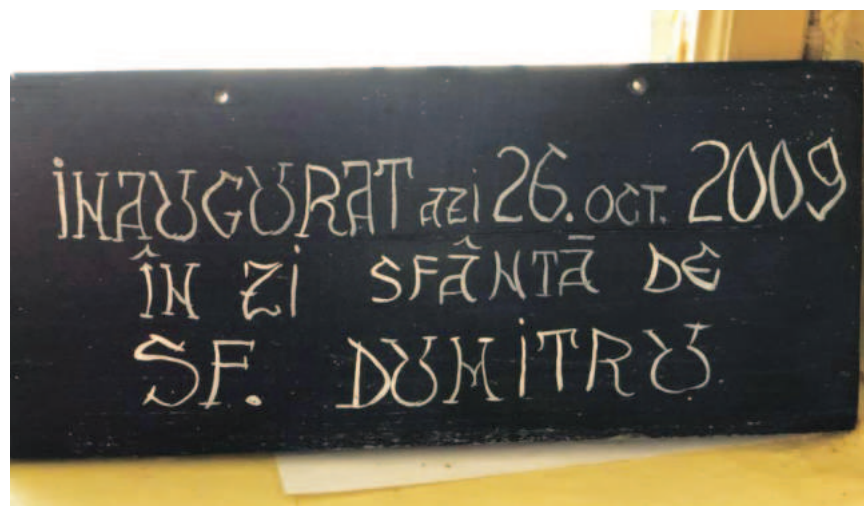 INAUGURAT azi 26. OCT. 2009
ÎN ZI SFÂNTĂ DE
SF. DUMITRU